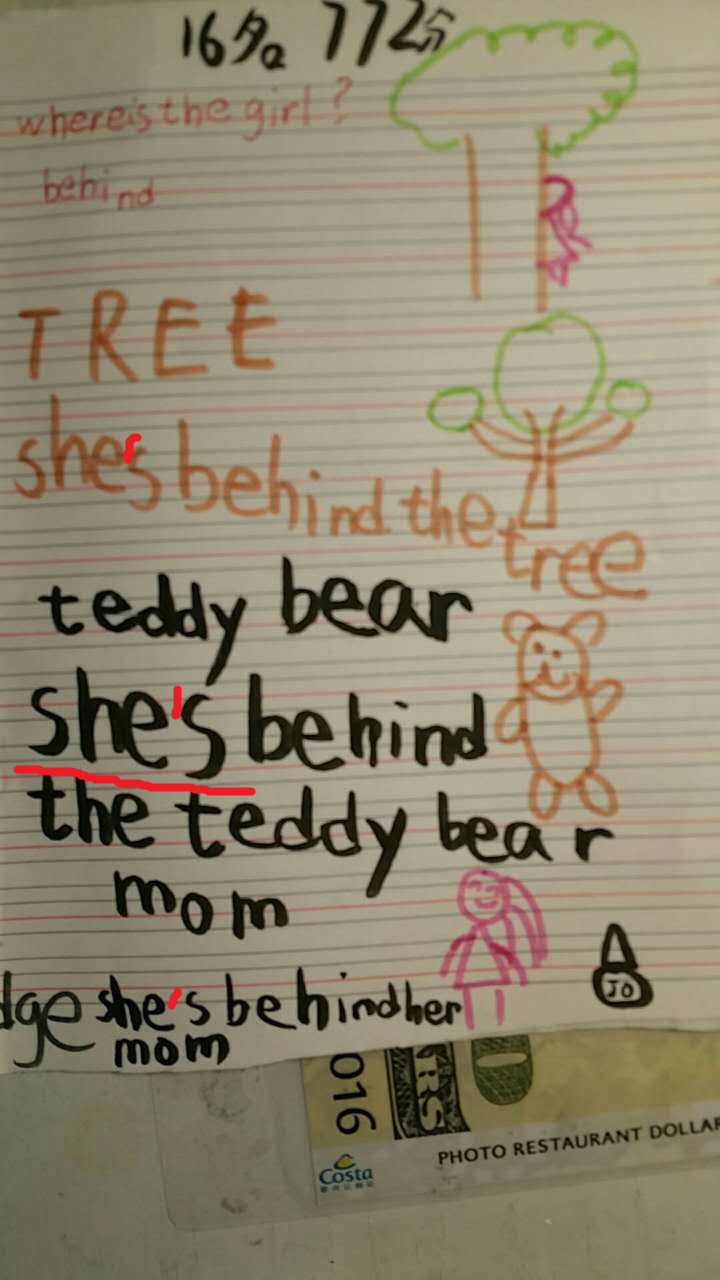 16名 772分
where is the girl?
behind
TREE
she's behind the tree
teddy bear
she's behind
the teddy bear
mom
dge she's behind her
mom
JO
016
RS
0
PHOTO RESTAURANT DOLLAR
Costa